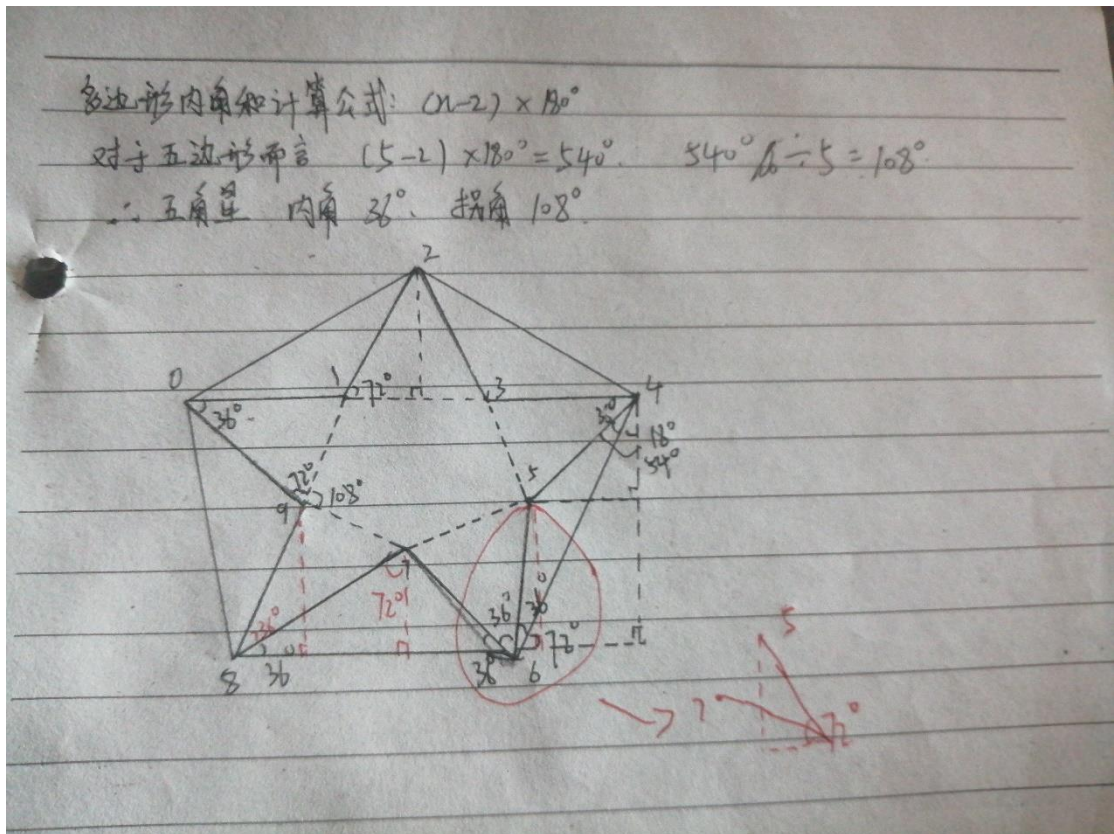 多边形内角和计算公式: (n-2)×180°
对于五边形而言 (5-2)×180°=540°. 540°÷5=108°
∴五角星 内角 36°、拐角 108°.
2
0
1
72°
3
4
36°
36°
18°
54°
72°
108°
9
5
7
72°
36°
36°
36°
36°
8
36°
6
72°
5
7
72°